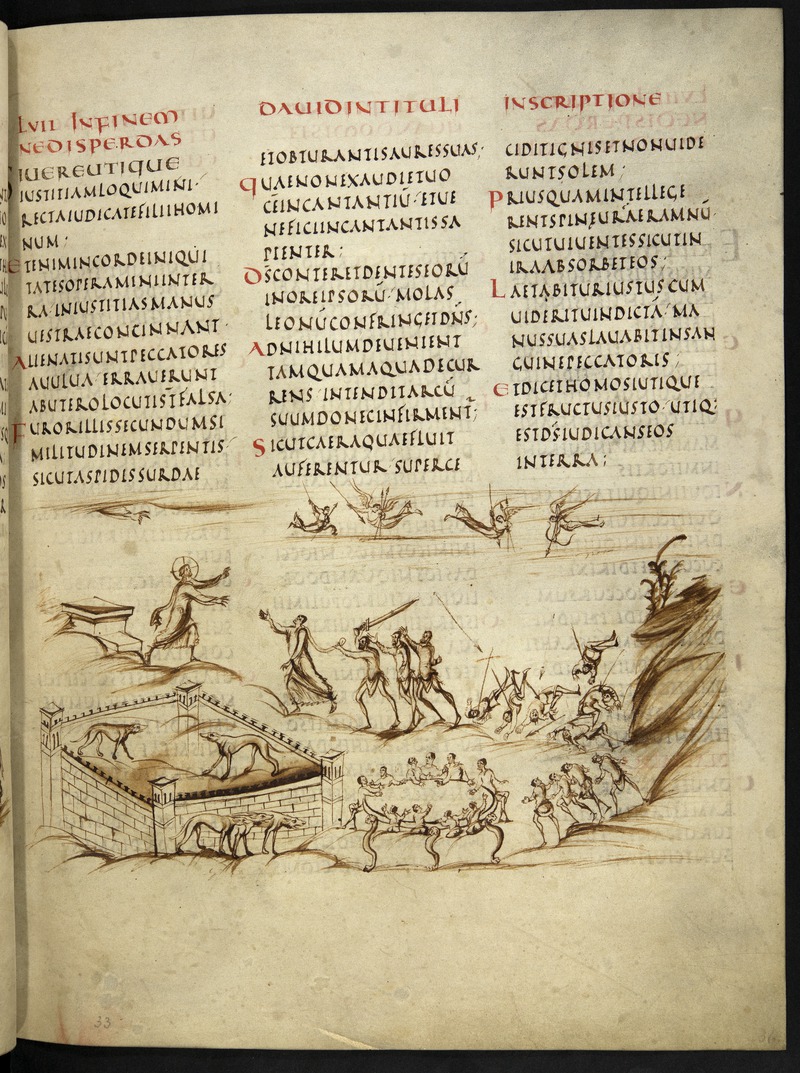 LVII INFINEM DAUIDINTITULI INSCRIPTIONE
NEDISPERDAS
SIUEREUTIQUE
IUSTITIAMLOQUIMINI·
RECTAIUDICATEFILIIHOMI
NUM;
ETENIMINCORDEINIQUI
TATESOPERAMINIINTER
RA INIUSTITIASMANUS
UESTRAECONCINNANT·
ALIENATISUNTPECCATORES
AUULUA ERRAUERUNT
ABUTEROLOCUTISTFALSA·
FURORILLISSECUNDUMSI
MILITUDINEMSERPENTIS
SICUTASPIDISSURDAE
ETOBTURANTISAURESSUAS;
QUAENONEXAUDIETUO
CEINCANTANTIŪ· ETUE
NEFICIINCANTANTISSA
PIENTER;
DSCONTERETDENTESEORŪ
INOREIPSORŪ· MOLAS
LEONŪCONFRINGETDN̄S;
ADNIHILUMDEUENIENT
TAMQUAMAQUADECUR
RENS INTENDITARCŪ
SUUMDONECINFIRMENT;
SICUTCAERAQUAEFLUIT
AUFERENTUR SUPERCE
CIDITIGNISETNONUIDE
RUNTSOLEM;
PRIUSQUAMINTELLEGE
RENTSPINEURAERAMNŪ·
SICUTUIUENTESSICUTIN
IRAABSORBETEOS;
LAETABITURIUSTUSCUM
UIDERITUINDICTĀ· MA
NUSSUASLAUABITINSAN
GUINEPECCATORIS;
ETDICETHOMOSIUTIQUE
ESTFRUCTUSIUSTO UTIQ:
ESTDS̄IUDICANSEOS
INTERRA;
33